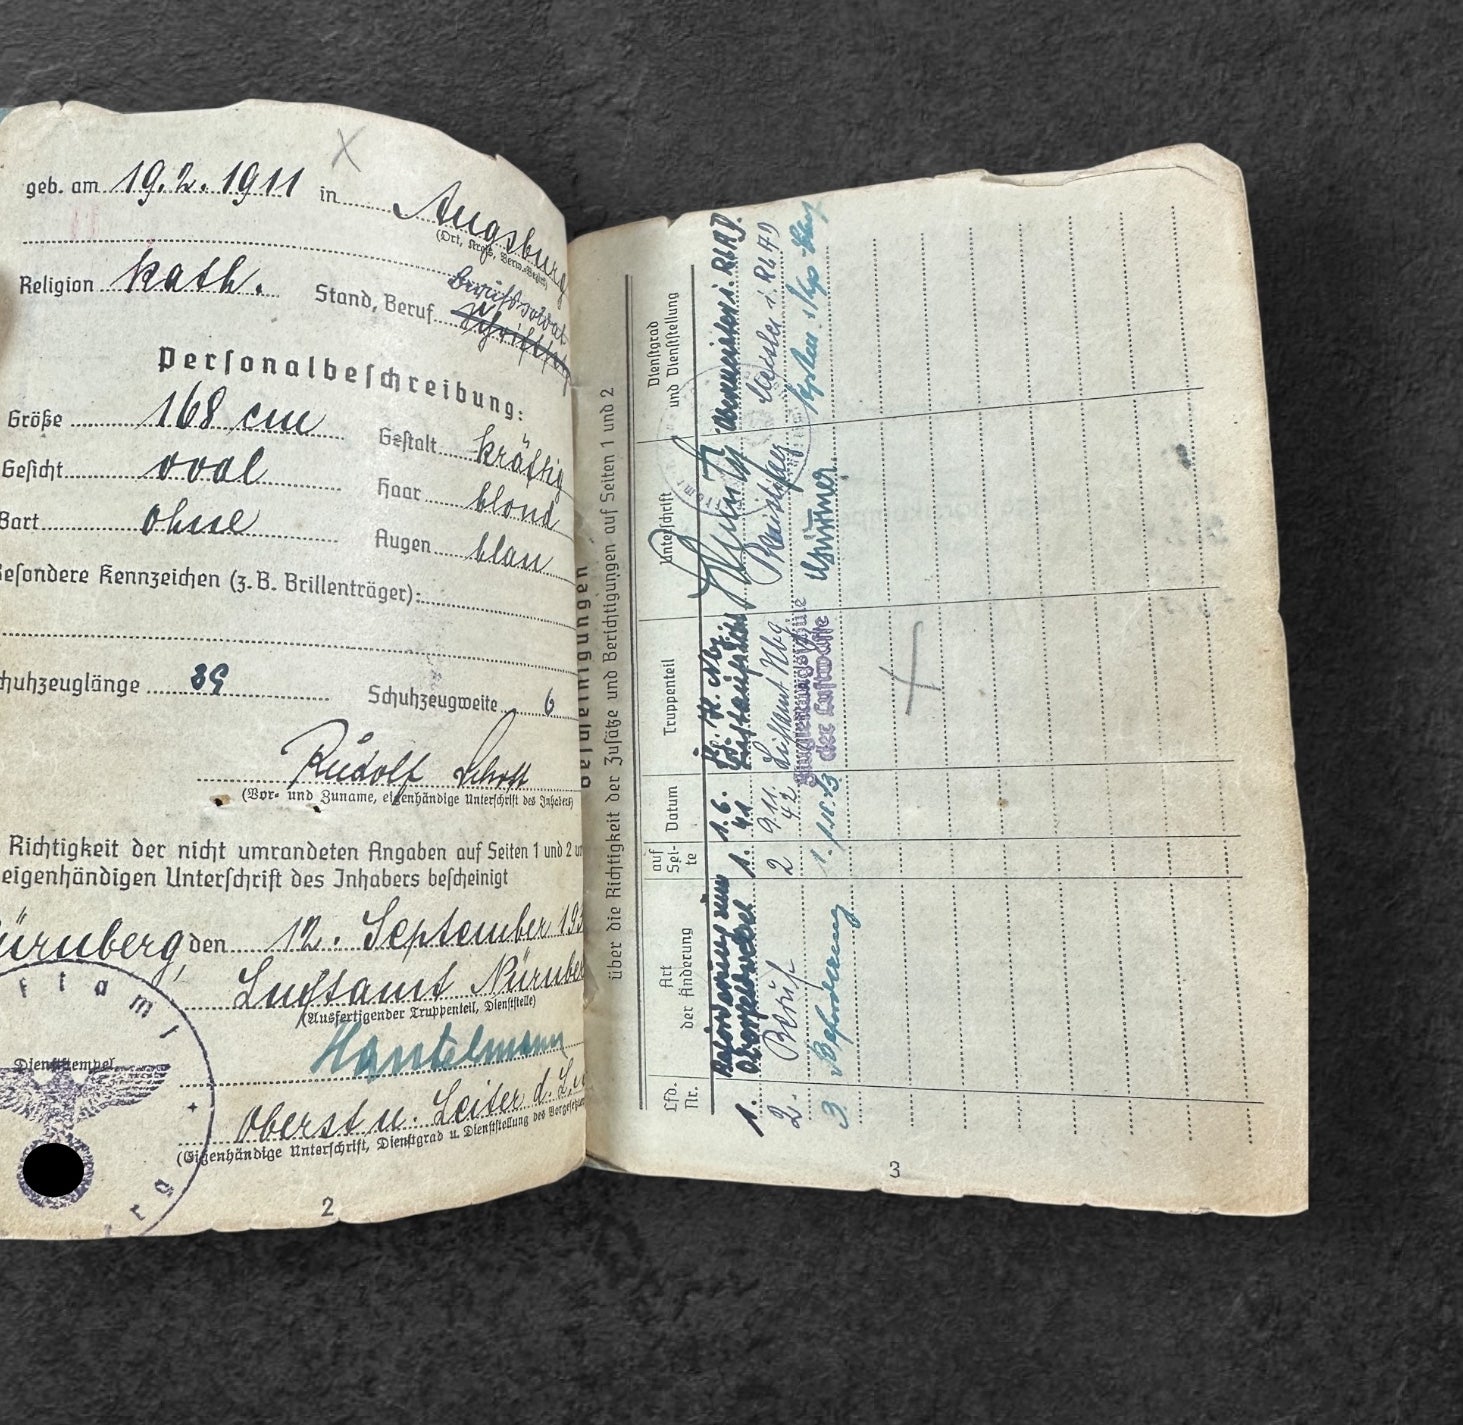 geb. am 19.2.1911 in Augsburg
(Ort, Kreis, Verw.-Bezirk)
Religion kath. Stand, Beruf Berufssoldat
Personalbeschreibung:
Größe 168 cm Gestalt kräftig
Gesicht oval Haar blond
Bart ohne Augen blau
Besondere Kennzeichen (z. B. Brillenträger):
Schuhzeuglänge 39 Schuhzeugweite 6
Rudolf Schott
(Vor- und Zuname, eigenhändige Unterschrift des Inhabers)
Richtigkeit der nicht umrandeten Angaben auf Seiten 1 und 2 u
eigenhändigen Unterschrift des Inhabers bescheinigt
Nürnberg, den 12. September 193
Luftamt Nürnbe
(Ausfertigender Truppenteil, Dienststelle)
Hantelmann
Oberst u. Leiter d. L.
(Eigenhändige Unterschrift, Dienstgrad u. Dienststellung des Vorgesetzten
Dienststempel
2
Bescheinigungen
über die Richtigkeit der Zusätze und Berichtigungen auf Seiten 1 und 2
Lfd. Nr. Art der Änderung auf Seite Datum Truppenteil Unterschrift Dienstgrad und Dienststellung
1. 1. 1.6. 41
2. Beruf 2 9.11. 42 Luftamt Nbg
3 Beförderung 1. der Luftwaffe
3